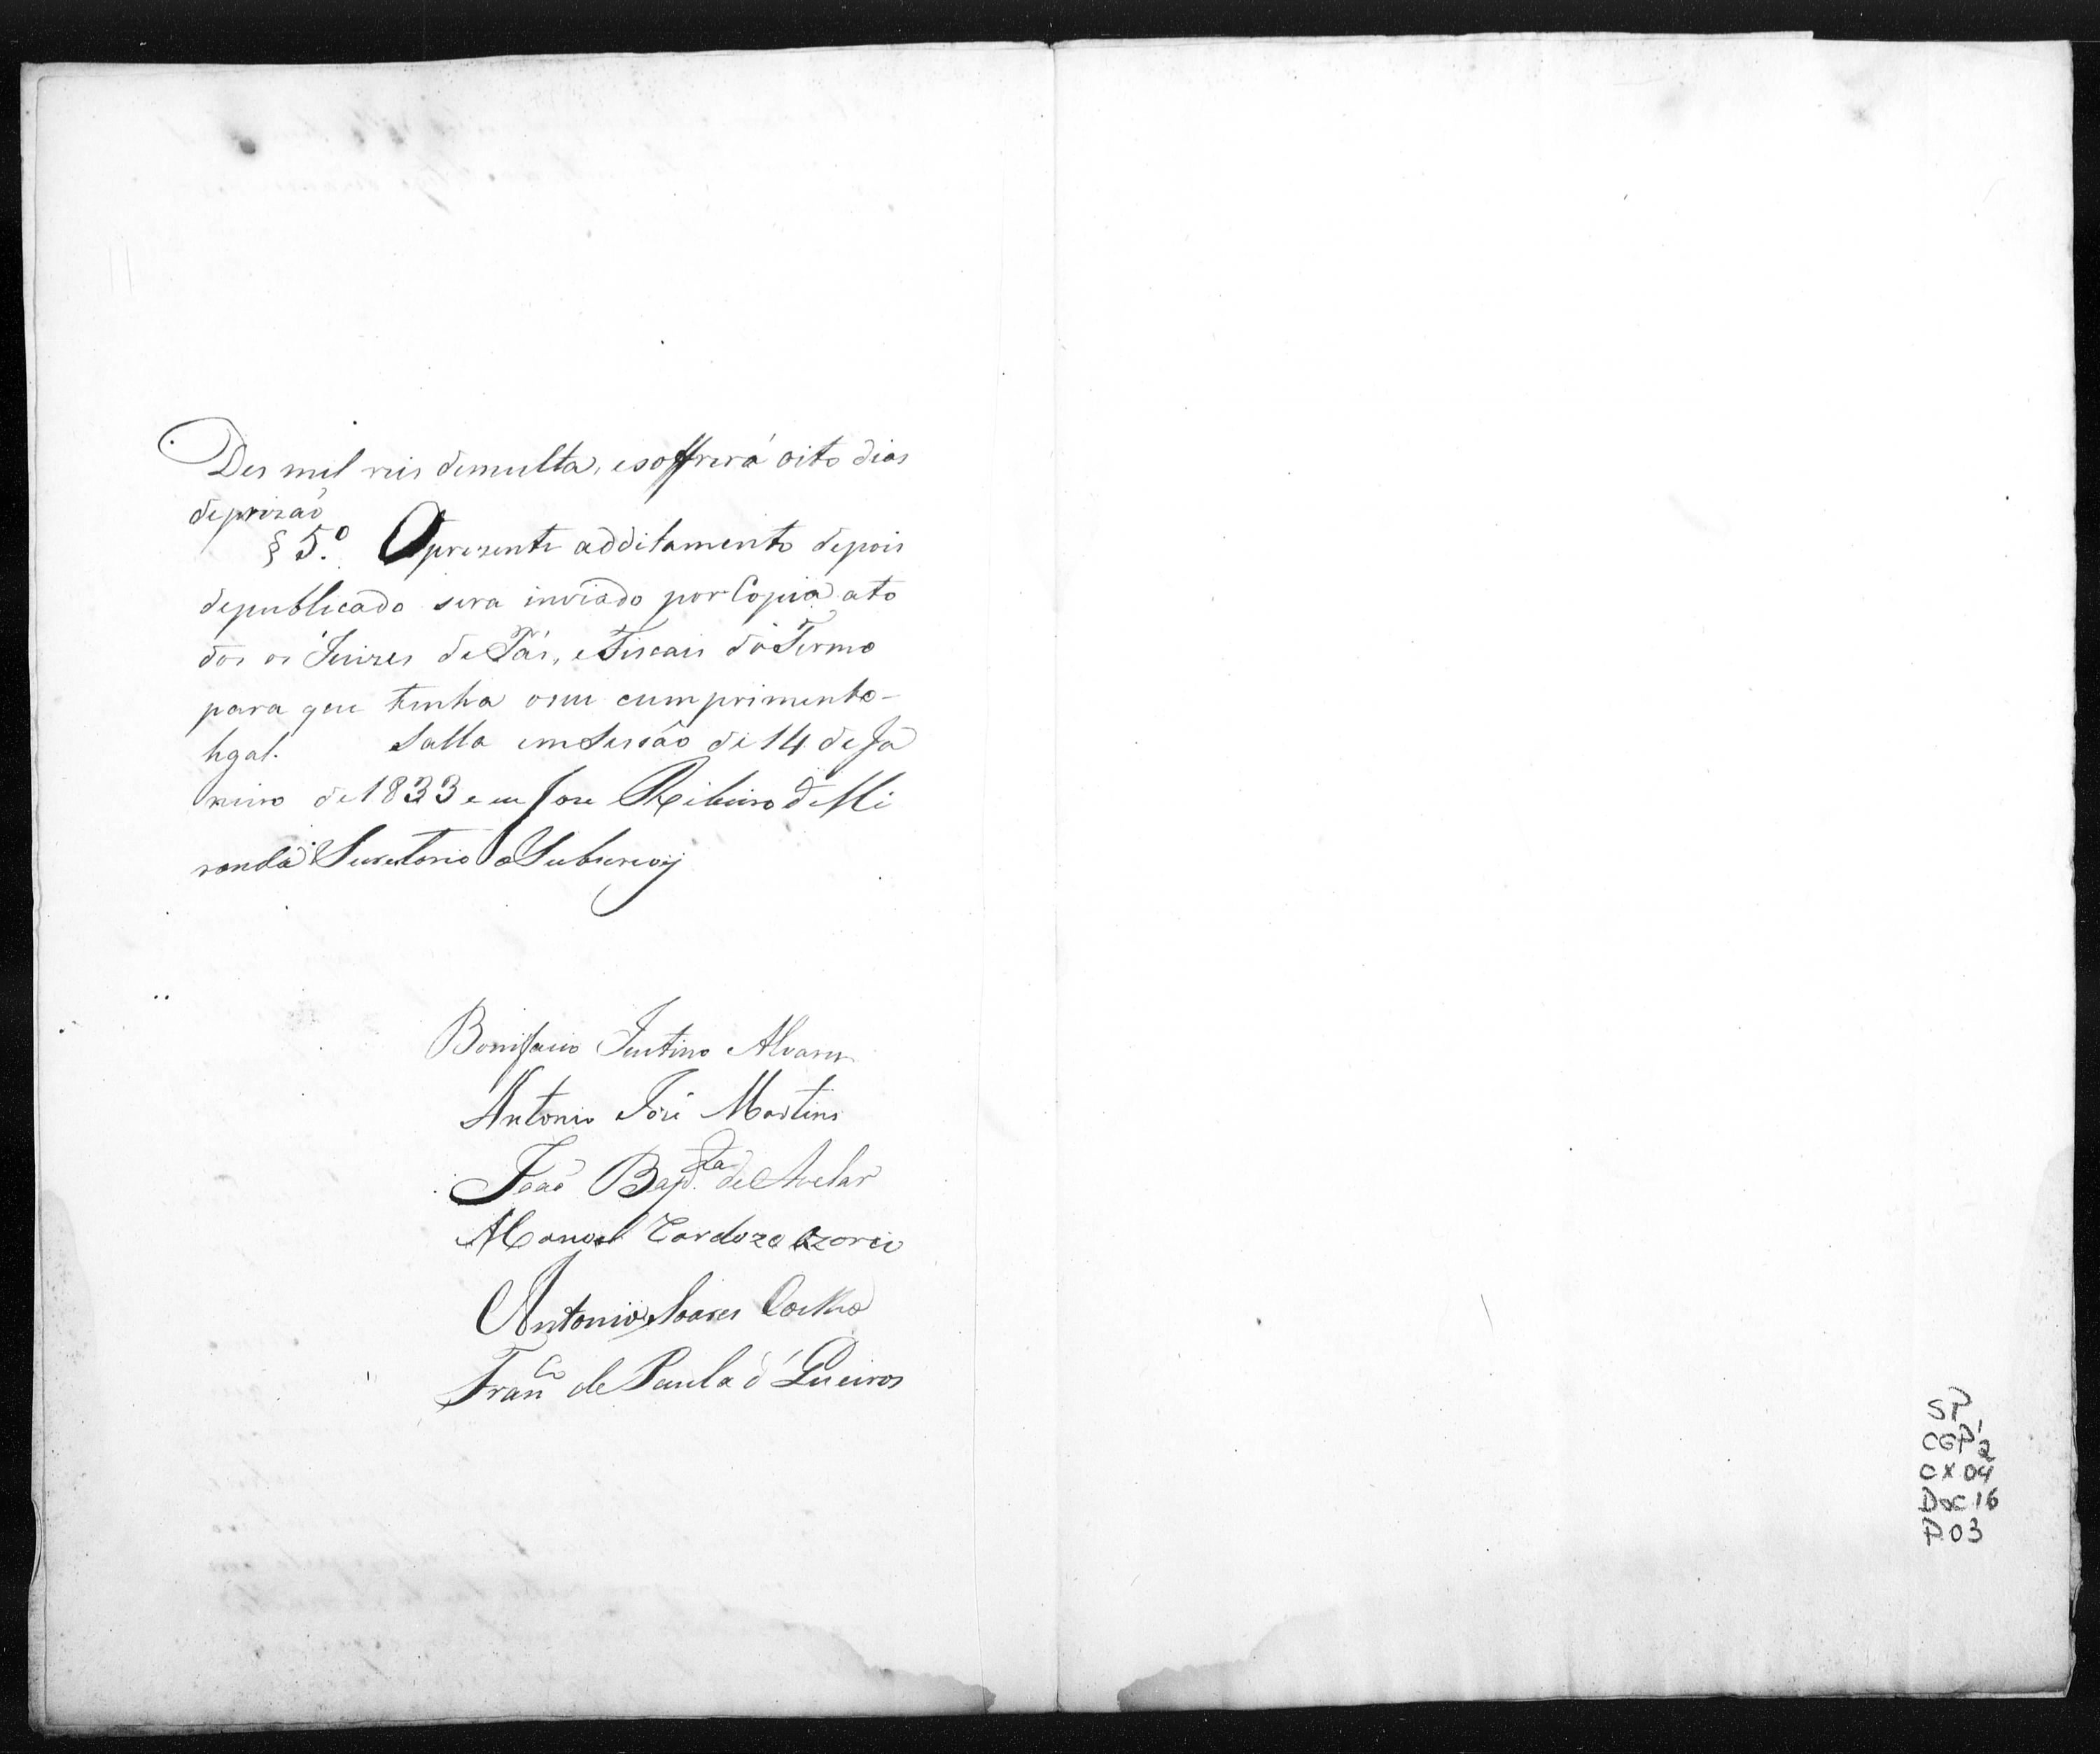 Des mil reis demulta, esoffrerá oito dias
deprizaõ
§ 5.º Opresente additamento depois
depublicado sera inviado por Copia ato
dos os Juizes de Pás, e Fiscais do Termo
para que tenha oseu cumprimento-
legal. Salla emSessão de 14 de Ja
neiro de 1833 e eu Jose Ribeiro de Mi
randa Secretario o Subscrevy
Bonifacio Alvares
Antonio José Martins
João Bap.ta de Avelar
Manoel Cardozo Ozorio
Antonio Soares Coelho
Fran.co de Paula d' Queiros
SP
CGP'2
CX 04
Doc 16
P.03